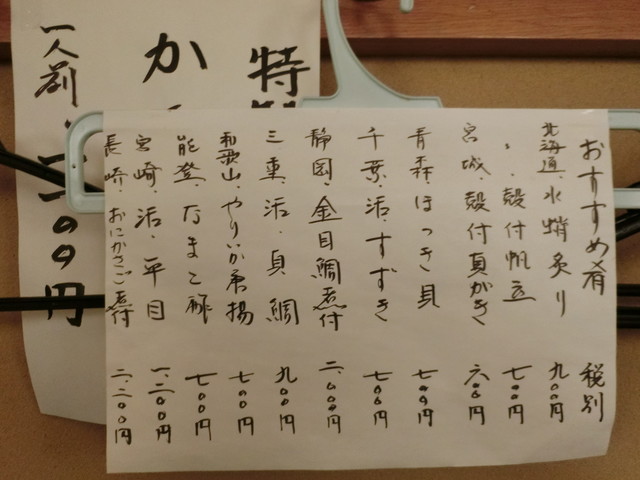 おすすめ肴 税別
北海道・水蛸炙り 九〇〇円
〃・殻付帆立 七〇〇円
宮城・殻付真がき 六〇〇円
青森・ほっき貝 七〇〇円
千葉・活すずき 七〇〇円
静岡・金目鯛煮付 二、〇〇〇円
三重・活・真鯛 九〇〇円
和歌山・やりいか唐揚 七〇〇円
能登・なまこ酢 七〇〇円
宮崎・活・平目 一、二〇〇円
長崎・おにかさご煮付 二、二〇〇円
特
か
一人前
円